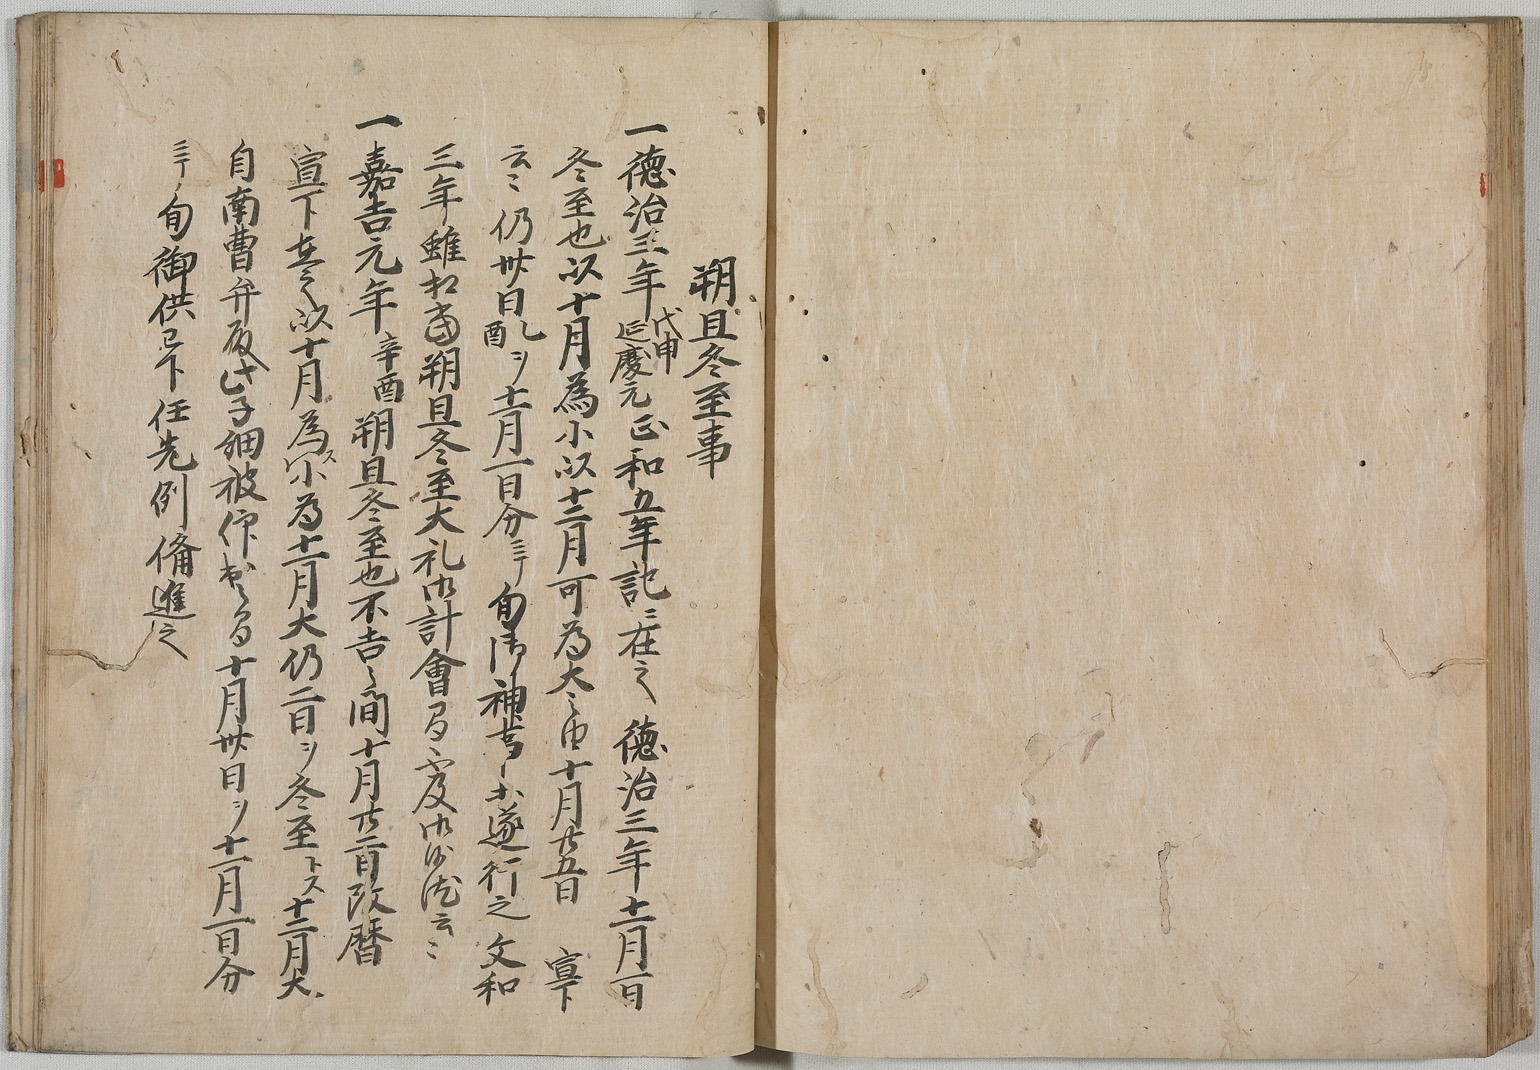 朔旦冬至事
一徳治三年戊申延慶元正和五年記ニ在之 徳治三年十一月一日
冬至也以十月為小以十二月可為大之由十月廿五日 宣下
云々仍卅日乙酉ヲ十一月一日分ニテ旬御神楽以下遂行之 文和
三年雖相当朔旦冬至大礼御計會
一嘉吉元年辛酉朔旦冬至也不吉之間十月廿一日改暦
宣下在之以十月為小ス為十一月大仍二日ヲ冬至トス十二月大
自南曹弁殿此子細被仰出之間十月卅日ヲ十一月一日分
ニテ旬御供已下任先例備進之